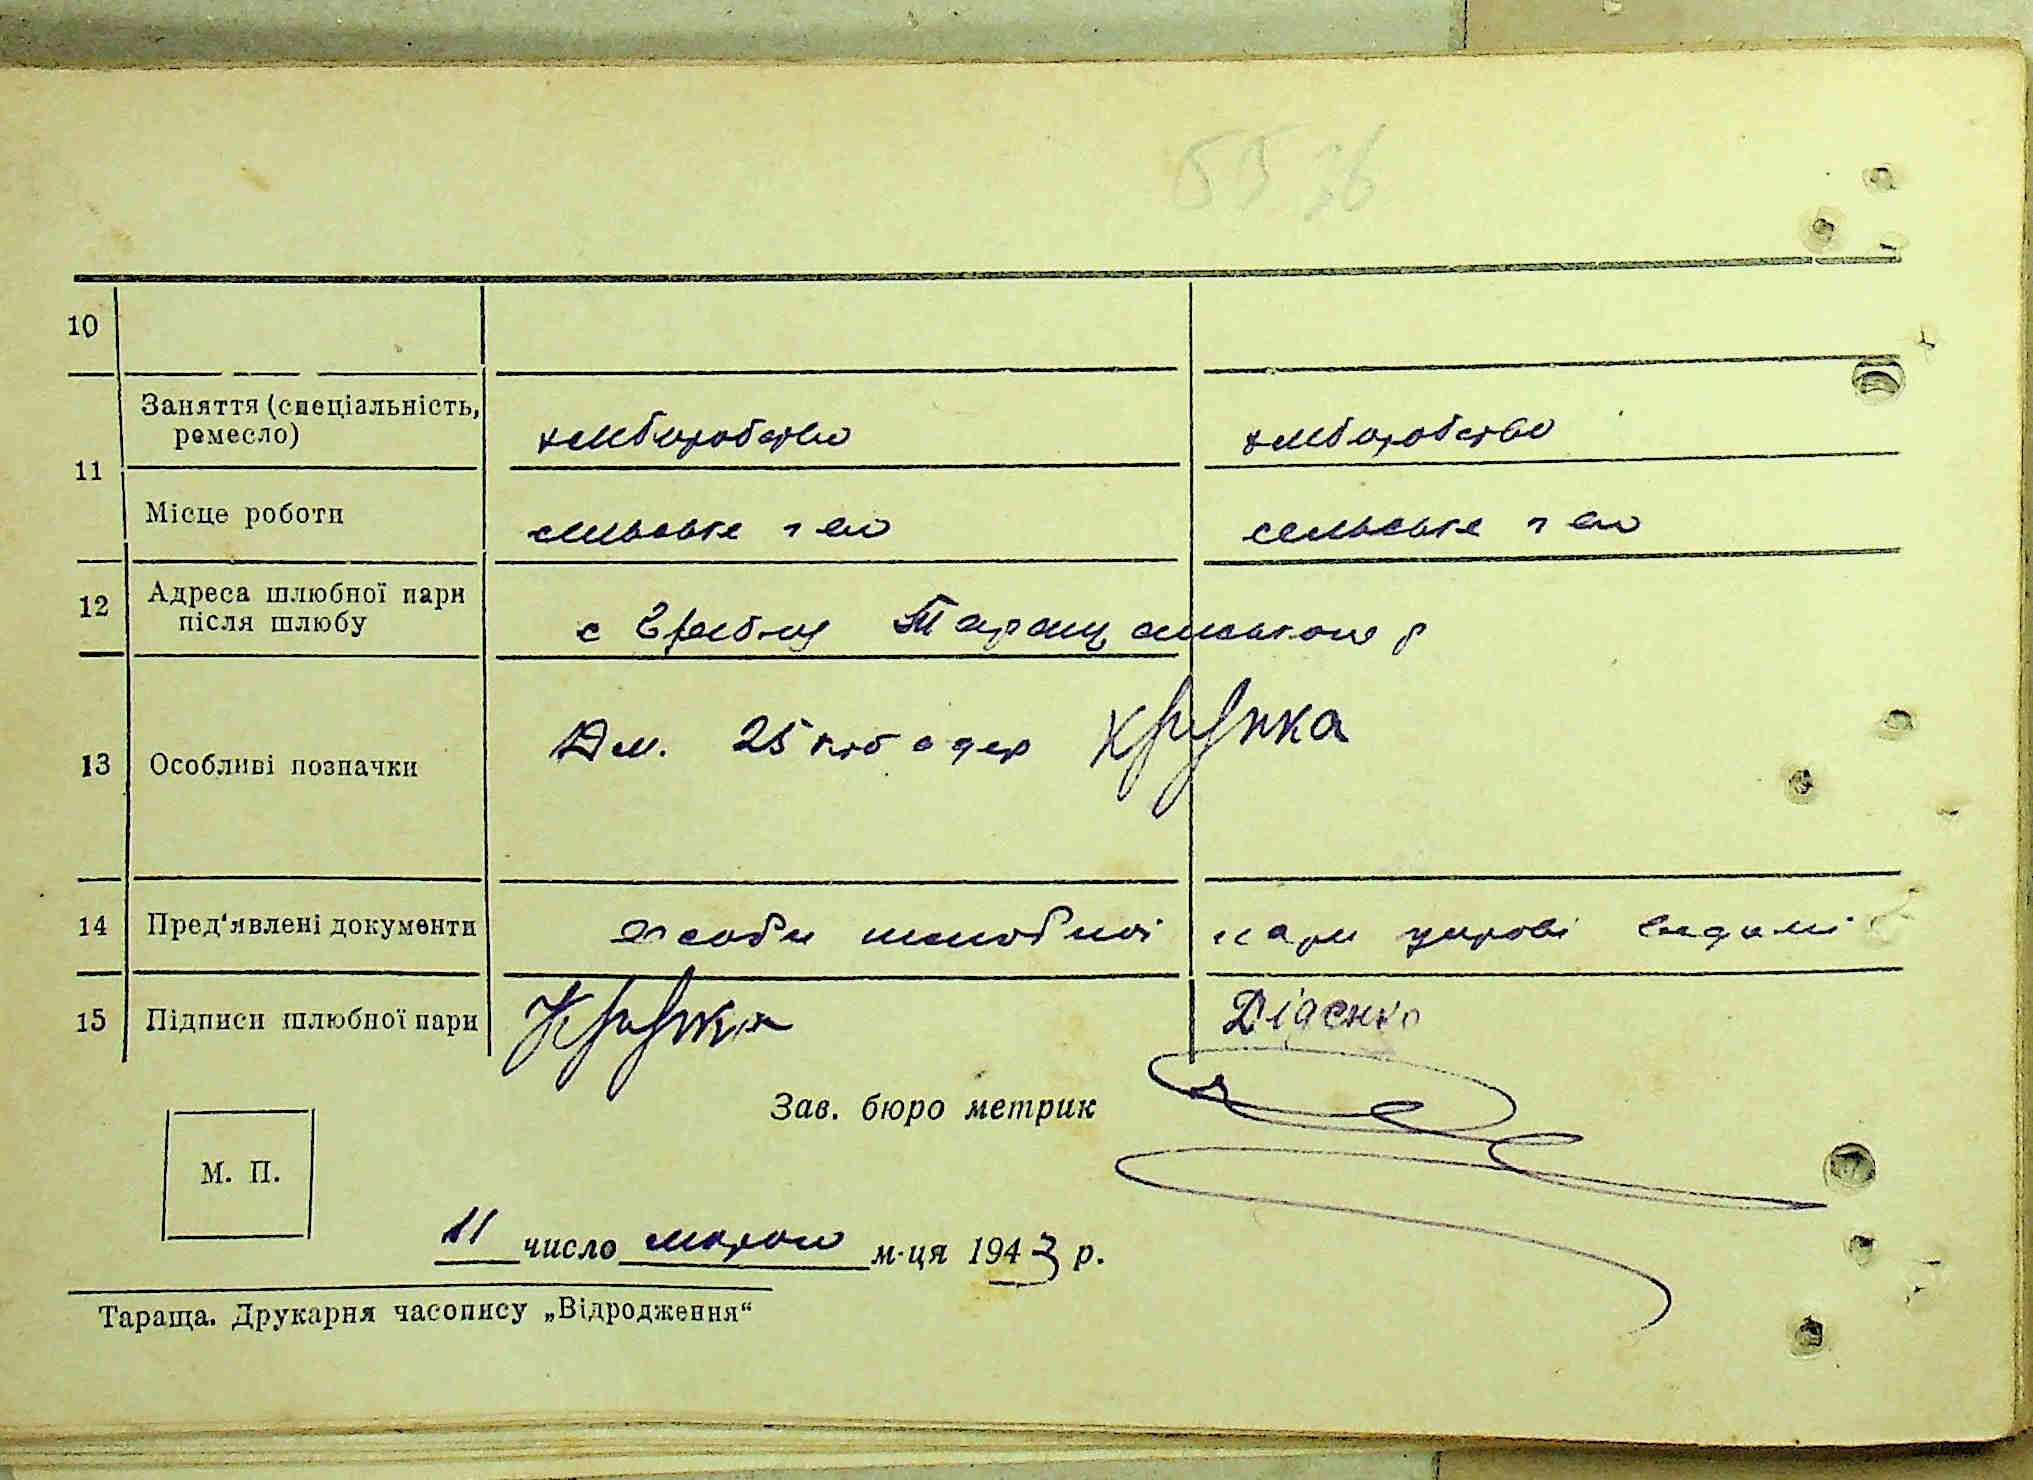 10
11 Заняття (спеціальність, ремесло) хліборобство хліборобство
Місце роботи сельське сельське
12 Адреса шлюбної пари після шлюбу с Таращанського р
13 Особливі позначки 25 Крупка
14 Пред'явлені документи особи шлюбної пари
15 Підписи шлюбної пари Крупка Діденко
Зав. бюро метрик
М. П.
11 число марта м-ця 1943 р.
Тараща. Друкарня часопису „Відродження“